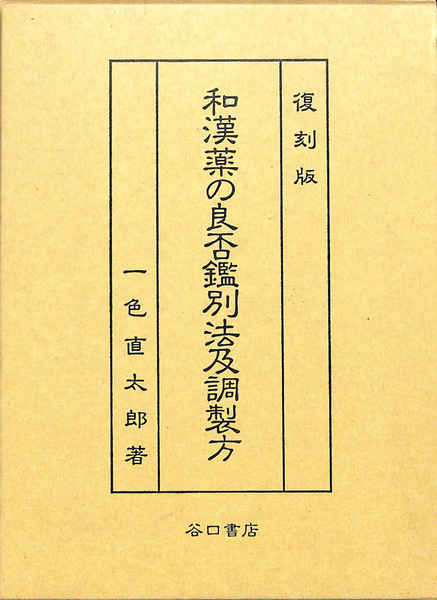 復刻版
和漢薬の良否鑑別法及調製方
一色直太郎著
谷口書店